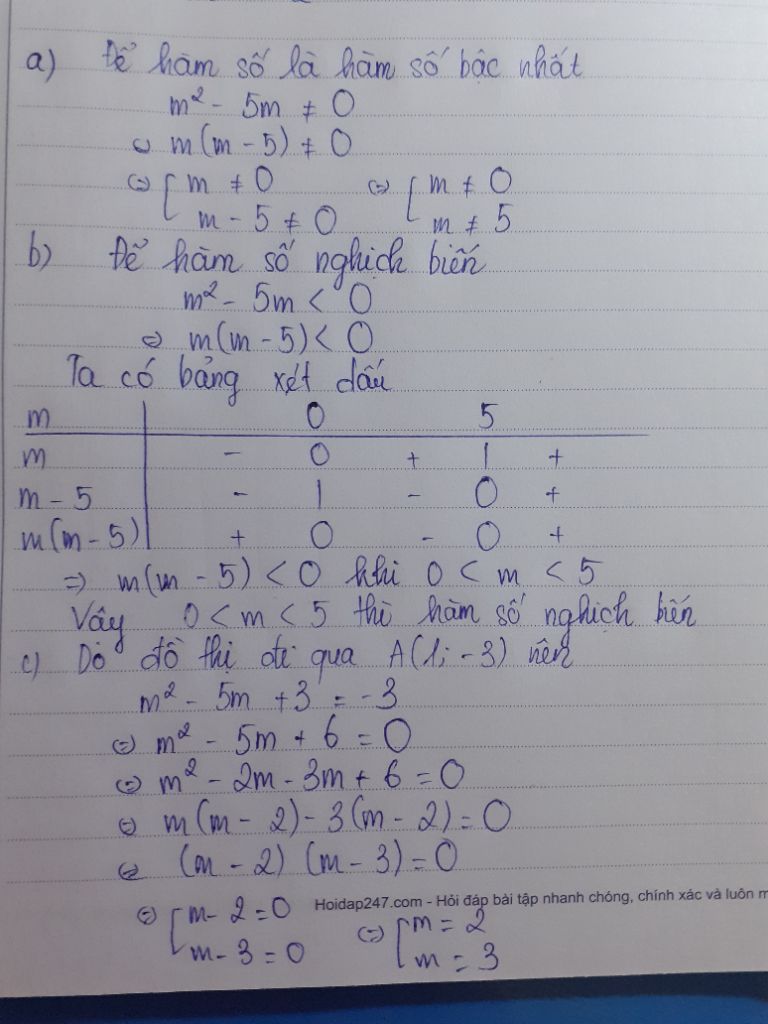 a) Để hàm số là hàm số bậc nhất
m² - 5m ≠ 0
⇔ m(m - 5) ≠ 0
⇔ [ m ≠ 0 ⇔ [ m ≠ 0
m - 5 ≠ 0 m ≠ 5
b) Để hàm số nghịch biến
m² - 5m < 0
⇔ m(m - 5) < 0
Ta có bảng xét dấu
m | 0 5
m | - 0 + | +
m - 5 | - | - 0 +
m(m - 5) | + 0 - 0 +
⇒ m(m - 5) < 0 khi 0 < m < 5
Vậy 0 < m < 5 thì hàm số nghịch biến
c) Do đồ thị đi qua A(1; -3) nên
m² - 5m + 3 = -3
⇔ m² - 5m + 6 = 0
⇔ m² - 2m - 3m + 6 = 0
⇔ m(m - 2) - 3(m - 2) = 0
⇔ (m - 2) (m - 3) = 0
Hoidap247.com - Hỏi đáp bài tập nhanh chóng, chính xác và luôn m
⇔ [ m - 2 = 0 ⇔ [ m = 2
m - 3 = 0 m = 3